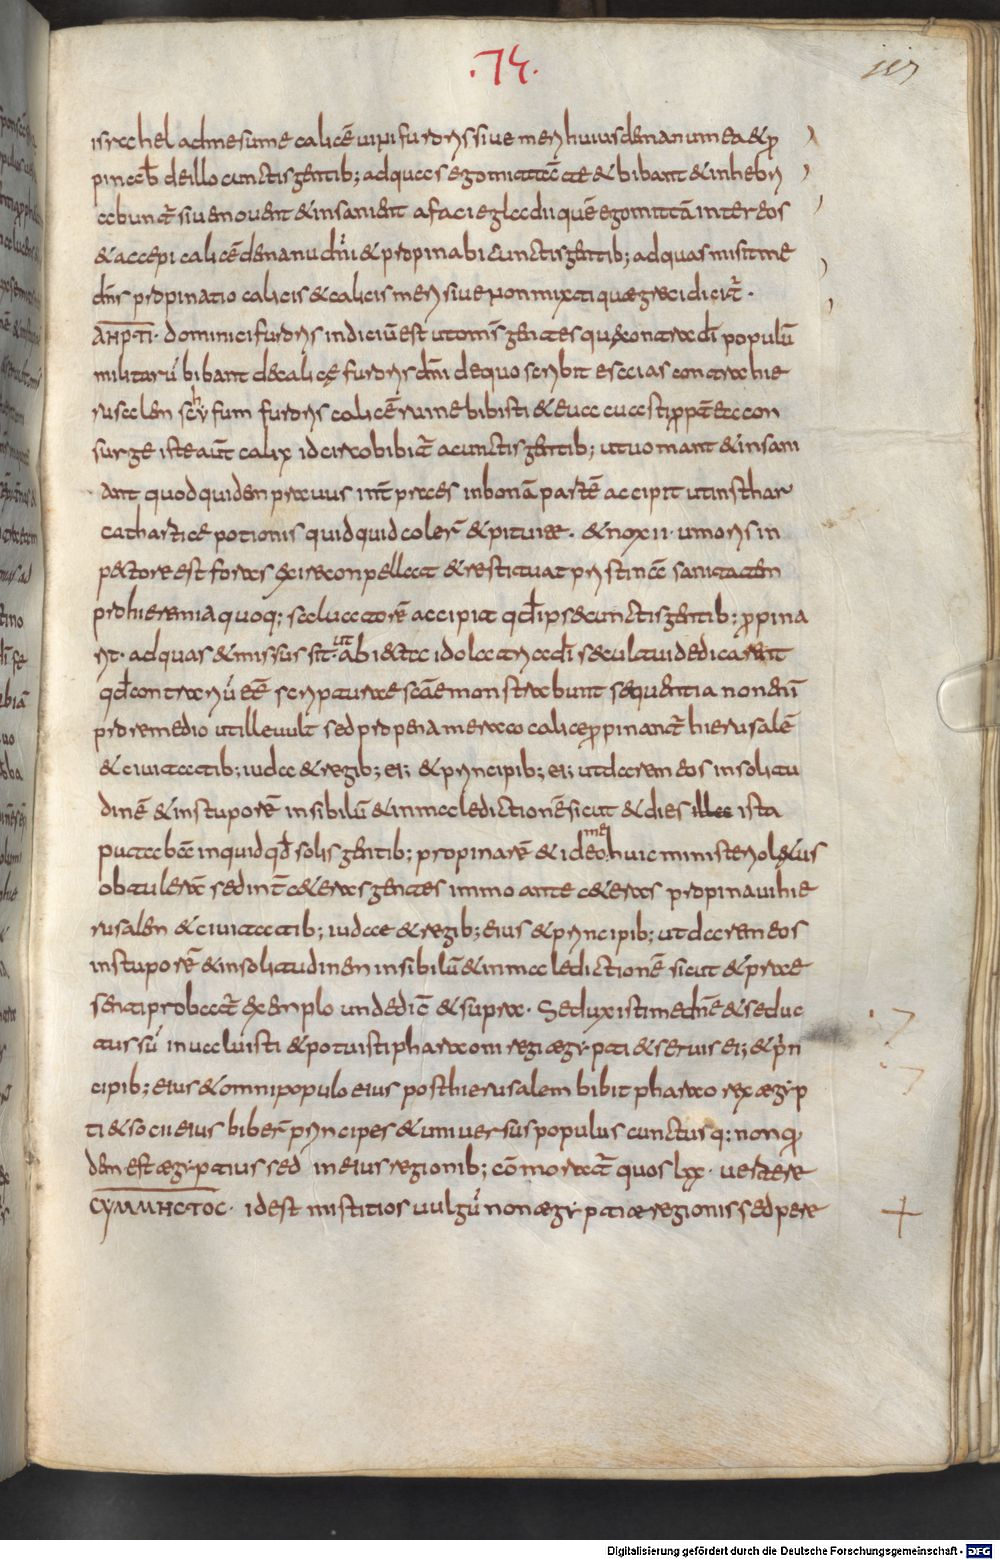 ·74·
israhel adme sume calicē uini furoris siue meri huius de manu mea & p
pinab deillo cunctis gentib; ad quas ego mittā te & bibant & inhebri
abunt̄ siue uomant & insaniant a facie gladii quē ego mittā inter eos
& accepi calicē de manu dn̄i & propinabi cunctis gentib; ad quas misit me
dn̄s propinatio calicis & calicis meri siue non mixti quae grece dicit̄·
ΑΚΡΑΤΙ· dominici furoris indiciū est ut om̄s gentes quae contra dī populū
militarū bibant de calice furoris dn̄i de quo scribit esaias contra hie
rusalen scyfum furoris calicē ruine bibisti & euacuasti ppt̄ea con
surge iste aut̄ calix idcirco bibit̄ a cunctis gentib; ut uomant & insani
ant quod quidem prauus int̄pres in bonā partē accipit ut instar
cathartice potionis quidquid colerē & pituitae· & noxii· umoris in
pectore est foras exire conpellat & restituat pristinā sanitatem
pro hieremia quoq; saluatorē accipiat qd̄ ipse cunctis gentib; ppina
rit· ad quas & missus sit· ut abiecta idolatria dī se cultui dedicarent
qd̄ contrariū eē scripturae scāe monstrabunt sequentia non enī
pro remedio ut ille uult sed pro pena meraco calice ppinant̄ hierusalē
& ciuitatib; iuda & regib; ei; & principib; ei; ut darem eos in solitu
dinē & in stuporē in sibilū & in maledictionē sicut & dies illa ista
putabā inquid qd̄ solis gentib; propinarē & ideo me huic ministerio laetus
obtulerā sed int̄ ceteras gentes immo ante ceteras propinaui hie
rusalem & ciuitatib; iudae & regib; eius & principib; ut darem eos
in stuporē & in solitudinem in sibilū & in maledictionē sicut & prae
senti probat̄ exemplo unde dic̄ & supra· Seduxisti me dn̄e & seduc
tus sū inualuisti & potuisti pharaoni regi aegypti & seruis ei; & prin
cipib; eius & omni populo eius post hierusalem bibit pharao rex aegyp
ti & socii eius biber̄ principes & uniuersus populus cunctusq; non q
dem est aegyptius sed in eius regionib; cōmorat̄ quos lxx· uertere
CΥΜΜΗCΤΟC· id est mistitios uulgū non aegyptiae regionis sed pere